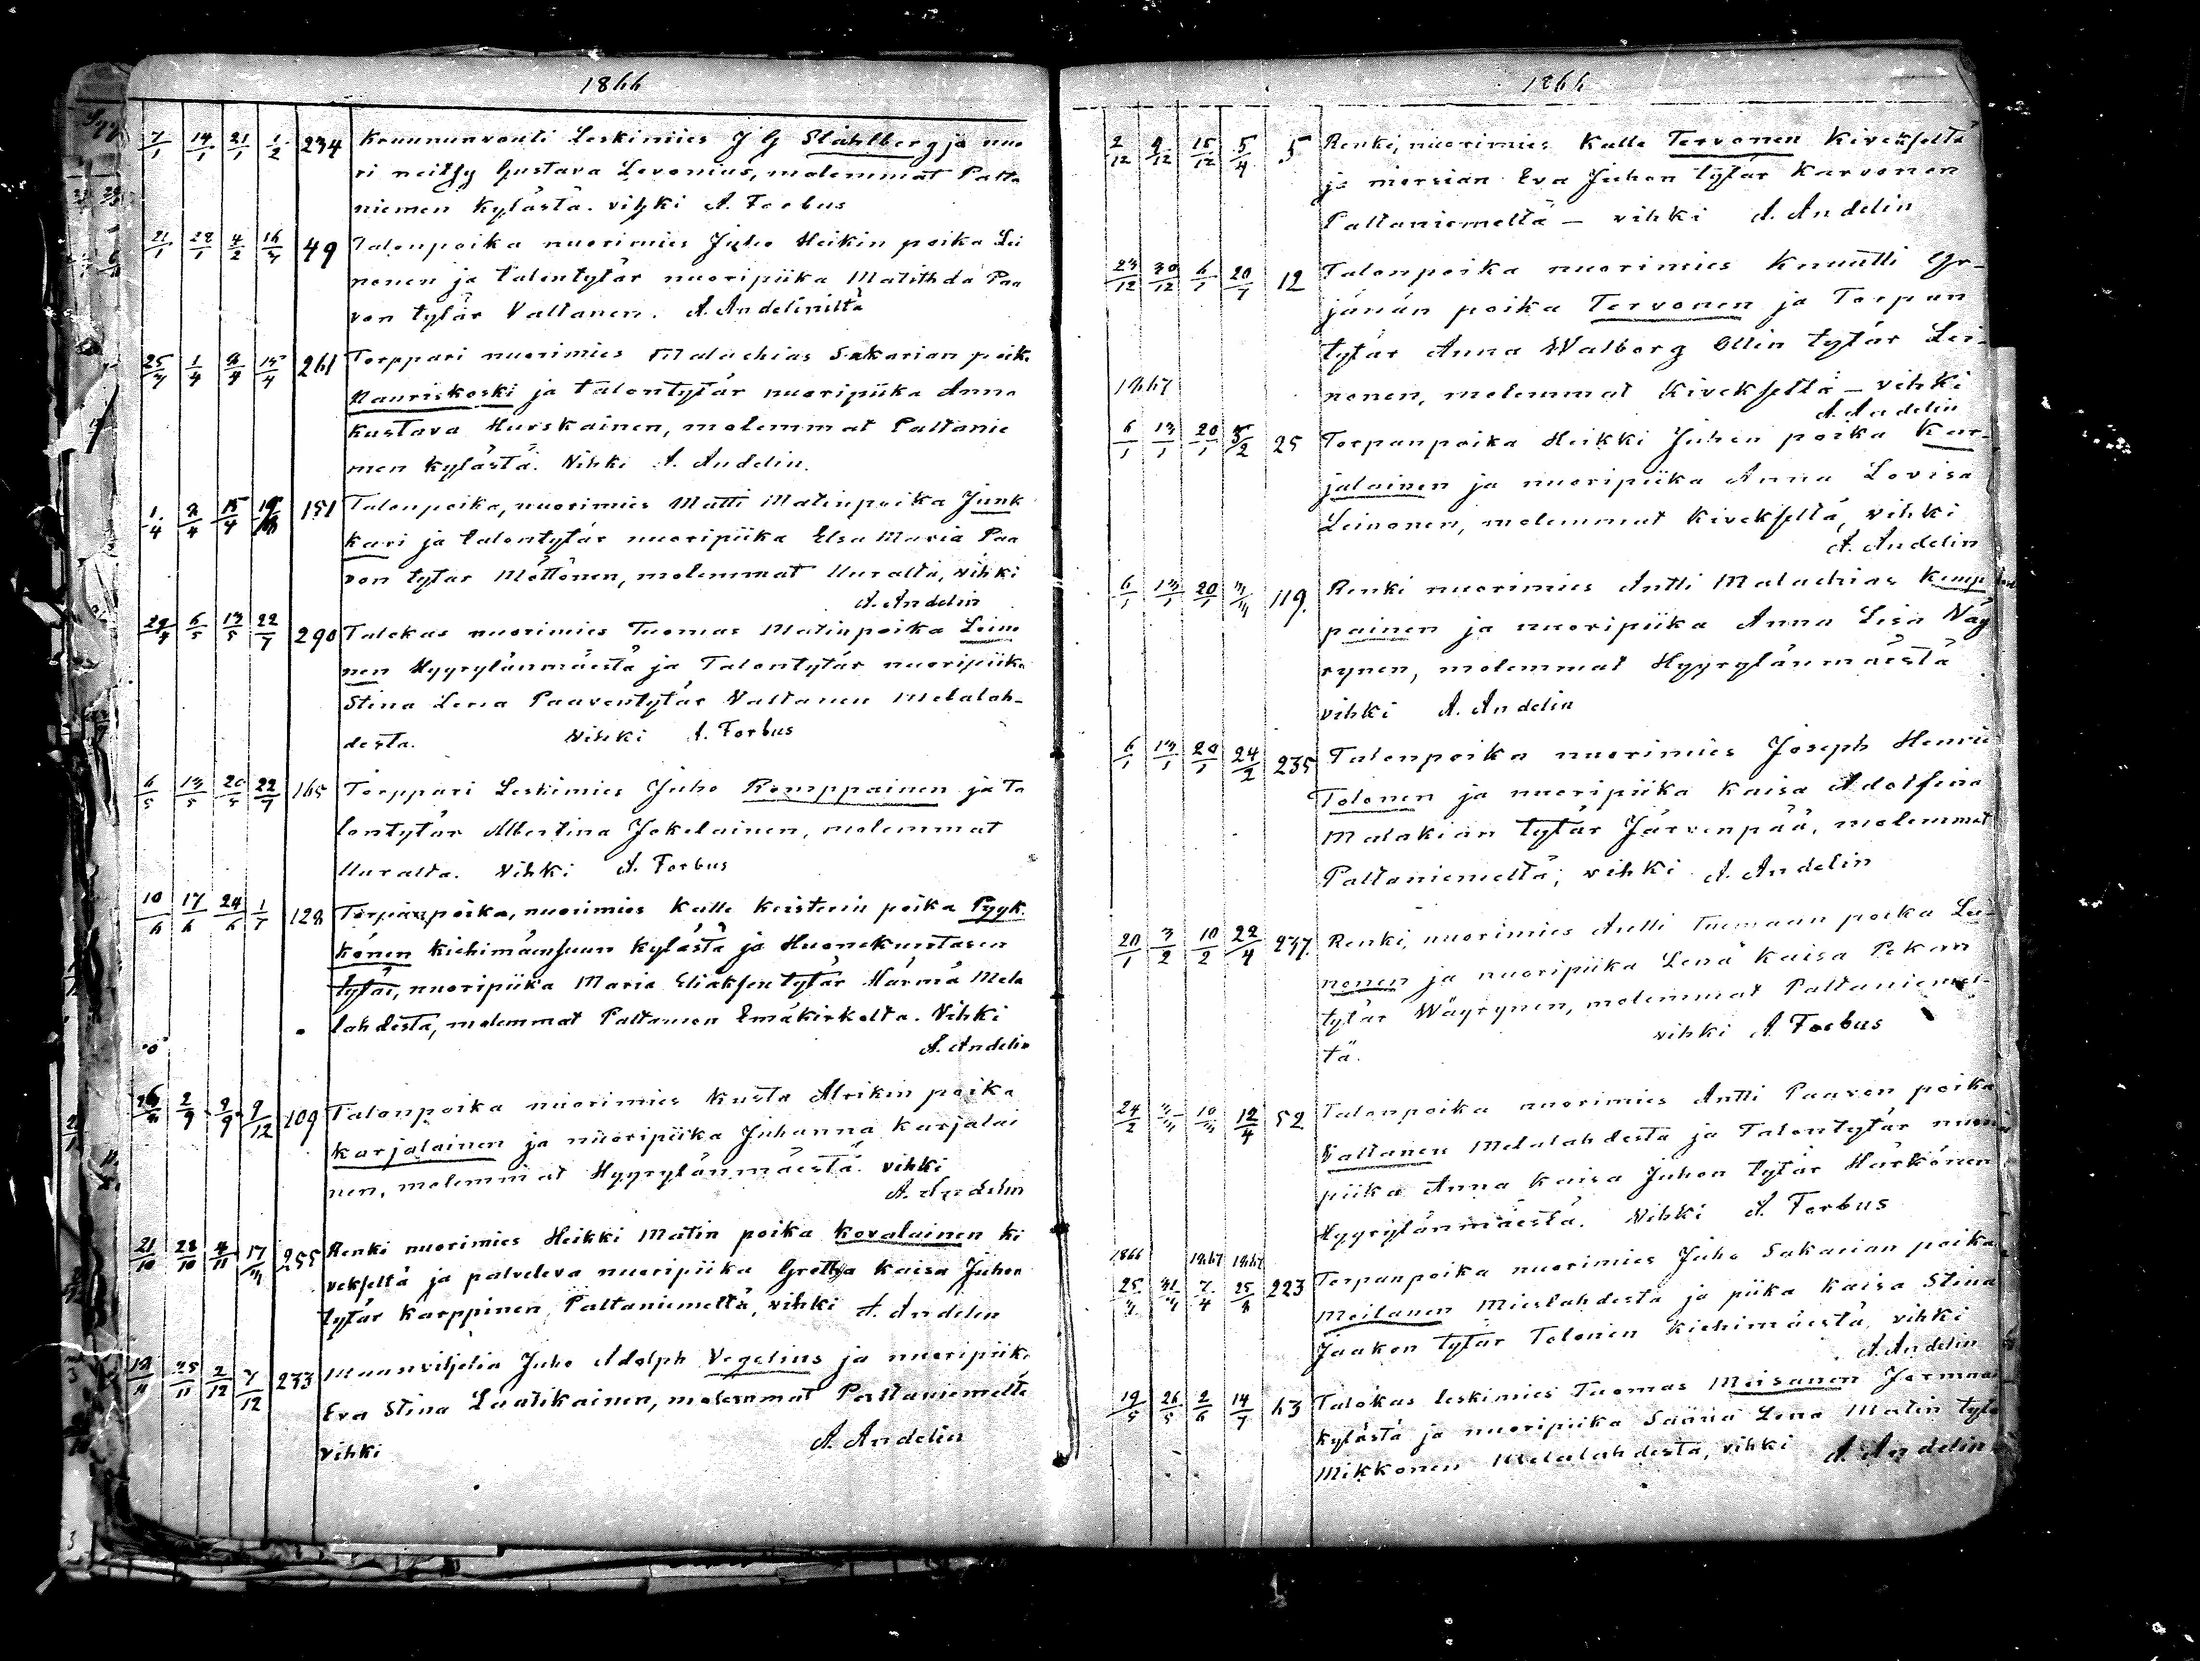 1866
7/1 14/1 21/1 1/2 234 Kruununvouti Leskimies J G Ståhlberg ja nuo
ri neitsy Gustava Levonius, molemmat Palta
niemen kylästä. vihki A. Forbus
21/1 28/1 4/2 16/3 49 Talonpoika nuorimies Juho Heikin poika Lei
nonen ja talontytär nuoripiika Matithda Paa
von tytär Valtanen. A. Andeliniltä
25/3 1/4 8/4 15/4 261 Torppari nuorimies Malachias Sakarian poik.
Nauriskoski ja talontytär nuoripiika Anna
Kustava Hurskainen, molemmat Paltanie
men kylästä. Vihki A. Andelin.
1/4 8/4 15/4 151 Talonpoika, nuorimies Matti Matinpoika Junk
kari ja talontytär nuoripiika Elsa Maria Paa
von tytär Möttönen, molemmat Uuralta, vihki
A. Andelin
29/4 6/5 13/5 22/7 290 Talokas nuorimies Tuomas Matinpoika Leino
nen Hyyrylänmäestä ja Talontytär nuoripiika
Stina Lena Paavontytär Valtanen Melalah-
desta. Vihki A. Forbus
6/5 13/5 20/5 22/7 165 Torppari Leskimies Juho Romppainen ja Ta
lontytär Albertina Jokelainen, molemmat
Uuralta. Vihki A. Forbus
10/6 17/6 24/6 1/7 128 Torpanpoika, nuorimies Kalle Keisterin poika Pyyk
könen Kiehimänsuun kylästä ja Huonekuntasen
tytär, nuoripiika Maria Eliaksen tytär Härmä Mela
lahdesta, molemmat Paltamon Emäkirkolta. Vihki
A. Andelin
26/8 2/9 9/9 9/12 109 Talonpoika nuorimies Kusta Abrikin poika
Karjalainen ja nuoripiika Juhanna Karjalai
nen, molemmat Hyyrylänmäestä. vihki
A. Andelin
21/10 28/10 4/11 17/3 255 Renki nuorimies Heikki Matin poika Kovalainen Ki
vekseltä ja palveleva nuoripiika Gretha Kaisa Juhon
tytär Karppinen, Paltaniemeltä, vihki A. Andelin
18/11 25/11 2/12 7/12 233 Maanviljeliä Juho Adolph Vegelius ja nuoripiik.
Eva Stina Laatikainen, molemmat Paltaniemeltä
vihki A. Andelin
1866
2/12 9/12 15/12 5/4 5 Renki, nuorimies Kalle Tervonen Kivekseltä
ja morsian Eva Juhon tytär Karvonen
Paltaniemeltä — vihki A. Andelin
23/12 30/12 6/1 20/1 12 Talonpoika nuorimies Knuutti Yr-
jänän poika Tervonen ja Torpan
tytär Anna Walborg Ollin tytär Lei-
1867 nonen, molemmat Kivekseltä — vihki
A. Andelin
6/1 13/1 20/1 3/2 25 Torpanpoika Heikki Juhon poika Kar-
jalainen ja nuoripiika Anna Lovisa
Leinonen, molemmat Kivekseltä, vihki
A. Andelin
6/1 13/1 20/1 3/3 119. Renki nuorimies Antti Malachias Kemp
painen ja nuoripiika Anna Lisa Väy
rynen, molemmat Hyyrylänmäestä
vihki A. Andelin
6/1 13/1 20/1 24/2 235 Talonpoika nuorimies Joseph Henrik
Tolonen ja nuoripiika Kaisa Adolfina
Malakian tytär Järvenpää, molemmat
Paltaniemeltä; vihki A. Andelin
20/1 3/2 10/2 22/4 237. Renki, nuorimies Antti Tuomaan poika Lei-
nonen ja nuoripiika Lena Kaisa Pekan
tytär Wäyrynen, molemmat Paltaniemel-
vihki A. Forbus
tä.
24/2 3/3 10/3 12/4 52 Talonpoika nuorimies Antti Paavon poika
Valtanen Melalahdesta ja Talontytär nuori
piika Anna Kaisa Juhon tytär Härkönen
Hyyrylänmäestä. Vihki A. Forbus
1866 1867 1867
25/3 31/3 7/4 25/8 223 Torpanpoika nuorimies Juho Sakarian poika
Moilanen Mieslahdesta ja piika Kaisa Stina
Jaakon tytär Tolonen Kiehimäestä, vihki
A. Andelin
19/5 26/5 2/6 14/7 63 Talokas leskimies Tuomas Moisanen Jormuan
kylästä ja nuoripiika Sanna Lena Matin tytä
Mikkonen Melalahdesta, vihki A. Andelin